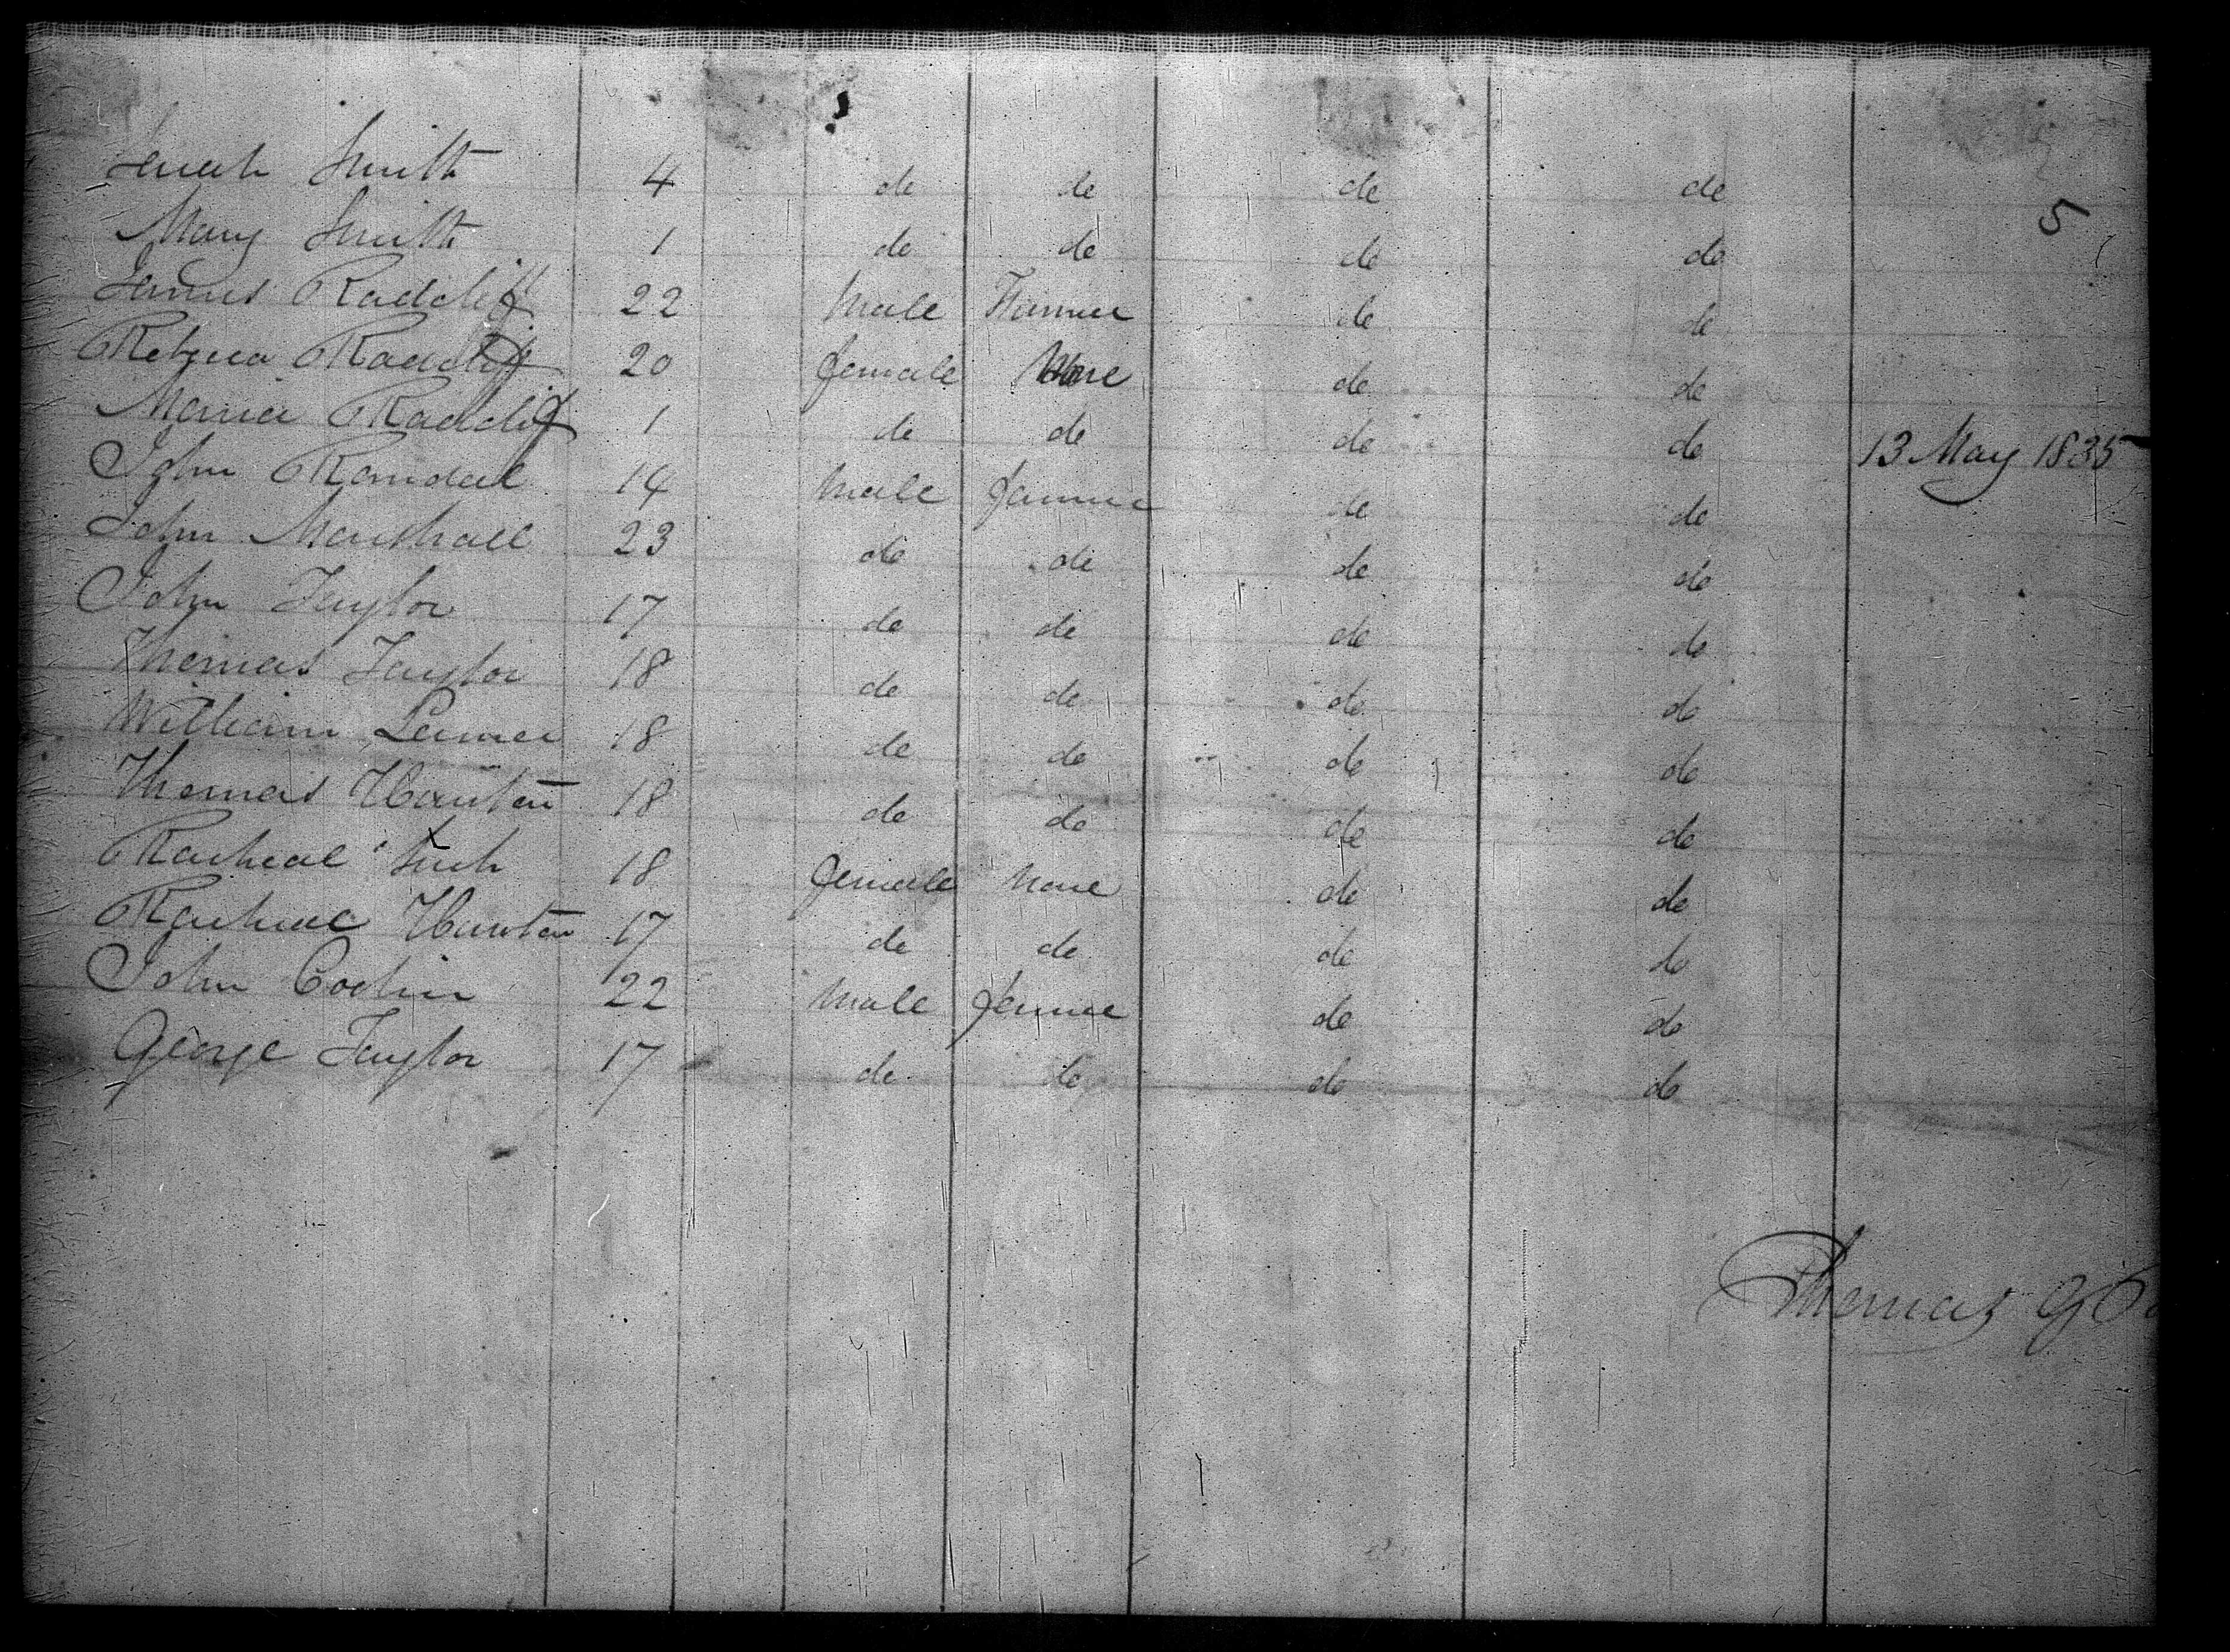 Sarah Smith 4 do do do do
5
Mary Smith 1 do do do do
James Radcliff 22 Male Farmer do do
Rebecca Radcliff 20 female None do do
Maria Radcliff 1 do do do do 13 May 1835
John Randal 14 Male farmer do do
John Marshall 23 do do do do
John Taylor 17 do do do do
Thomas Taylor 18 do do do do
William 18 do do do do
Thomas 18 do do do do
Racheal 18 female None do do
Racheal 17 do do do do
John 22 Male farmer do do
George Taylor 17 do do do do
Thomas